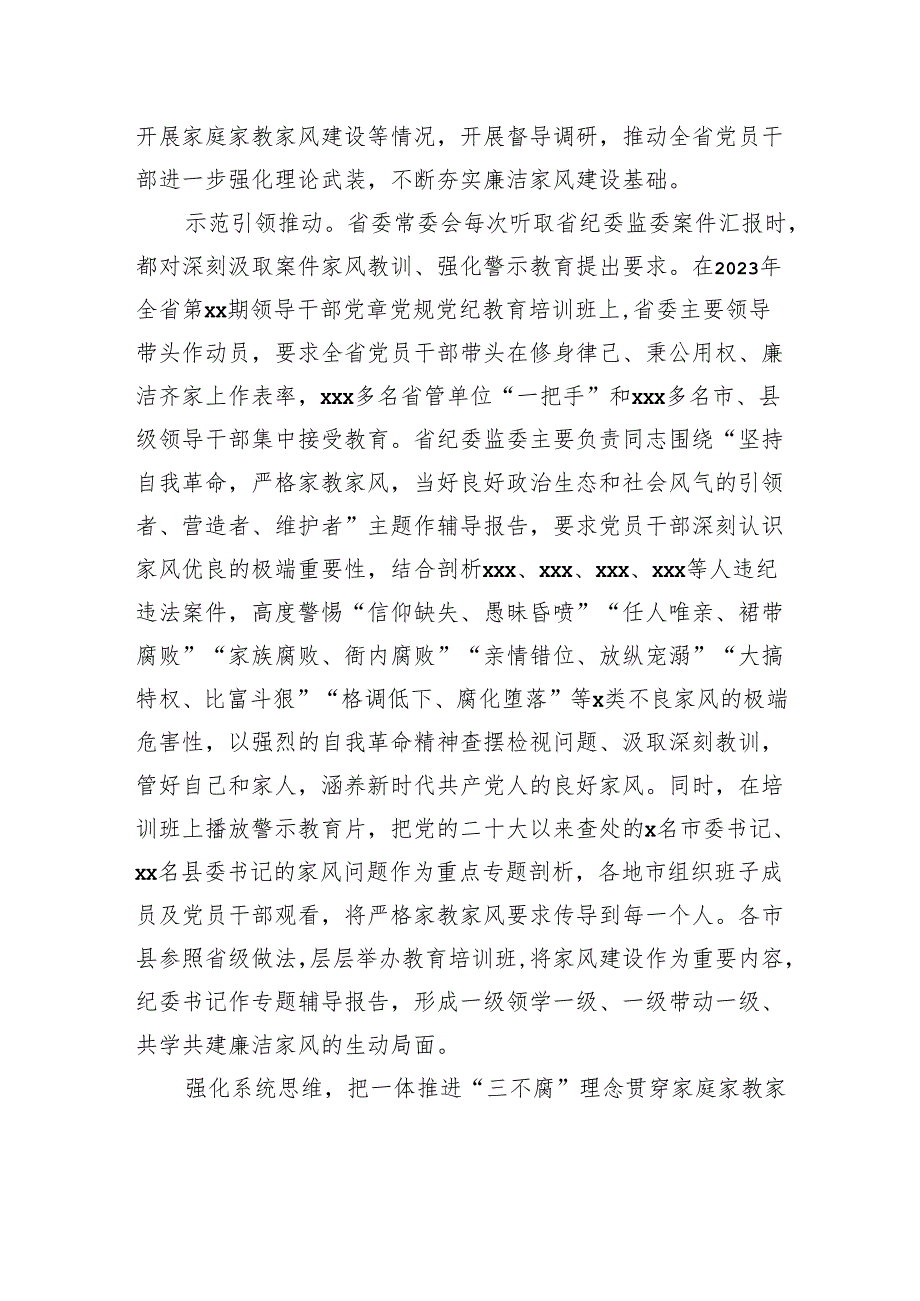 开展家庭家教家风建设等情况，开展督导调研，推动全省党员干
部进一步强化理论武装，不断夯实廉洁家风建设基础。
示范引领推动。省委常委会每次听取省纪委监委案件汇报时，
都对深刻汲取案件家风教训、强化警示教育提出要求。在2023年
全省第xx期领导干部党章党规党纪教育培训班上,省委主要领导
带头作动员，要求全省党员干部带头在修身律己、秉公用权、廉
洁齐家上作表率，xxx多名省管单位“一把手”和xxx多名市、县
级领导干部集中接受教育。省纪委监委主要负责同志围绕“坚持
自我革命，严格家教家风，当好良好政治生态和社会风气的引领
者、营造者、维护者”主题作辅导报告，要求党员干部深刻认识
家风优良的极端重要性，结合剖析xxx、xxx、xxx、xxx等人违纪
违法案件，高度警惕“信仰缺失、愚昧昏喷”“任人唯亲、裙带
腐败”“家族腐败、衙内腐败”“亲情错位、放纵宠溺”“大搞
特权、比富斗狠”“格调低下、腐化堕落”等x类不良家风的极端
危害性，以强烈的自我革命精神查摆检视问题、汲取深刻教训，
管好自己和家人，涵养新时代共产党人的良好家风。同时，在培
训班上播放警示教育片，把党的二十大以来查处的x名市委书记、
xx名县委书记的家风问题作为重点专题剖析，各地市组织班子成
员及党员干部观看，将严格家教家风要求传导到每一个人。各市
县参照省级做法,层层举办教育培训班,将家风建设作为重要内容，
纪委书记作专题辅导报告，形成一级领学一级、一级带动一级、
共学共建廉洁家风的生动局面。
强化系统思维，把一体推进“三不腐”理念贯穿家庭家教家